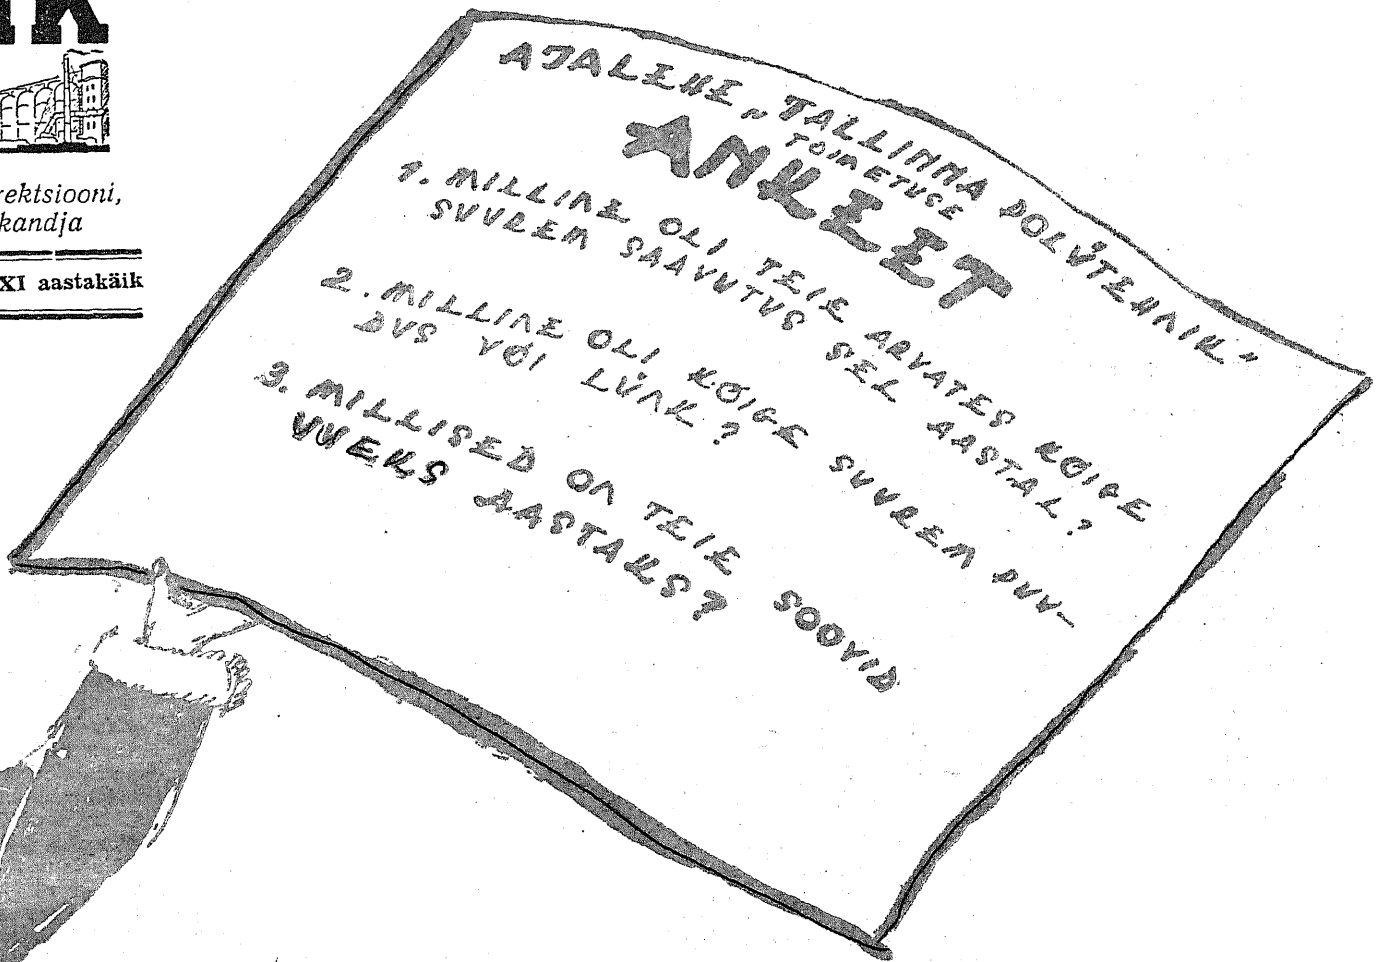 IK
rektsiooni,
kandja
XI aastakäik
AJALEHE „TALLINNA POLÜTEHNIK"
TOIMETUSE
ANKEET
1. MILLINE OLI TEIE ARVATES KÕIGE
SUUREM SAAVUTUS SEL AASTAL?
2. MILLINE OLI KÕIGE SUUREM PUU-
DUS VÕI LÜNK?
3. MILLISED ON TEIE SOOVID
UUEKS AASTAKS?